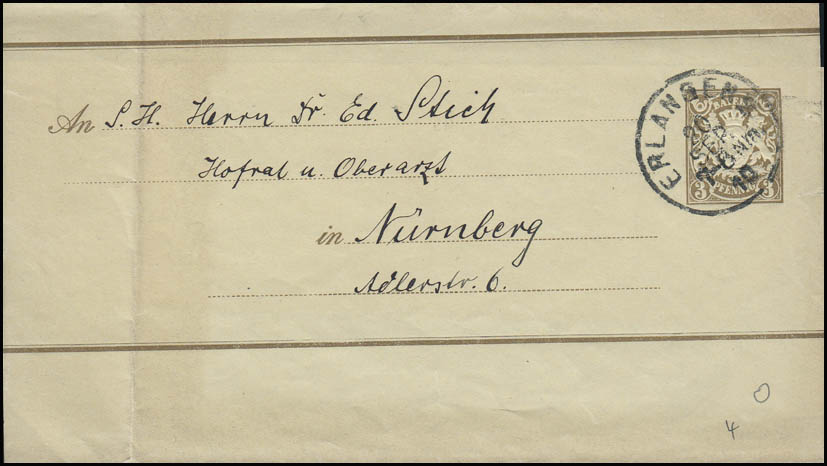 An S. H. Herrn Dr. Ed. Stich
Hofrat u. Oberarzt
in Nürnberg
Adlerstr. 6.
ERLANGEN
20
SEP
10
3 BAYERN 3
3 PFENNIG
4